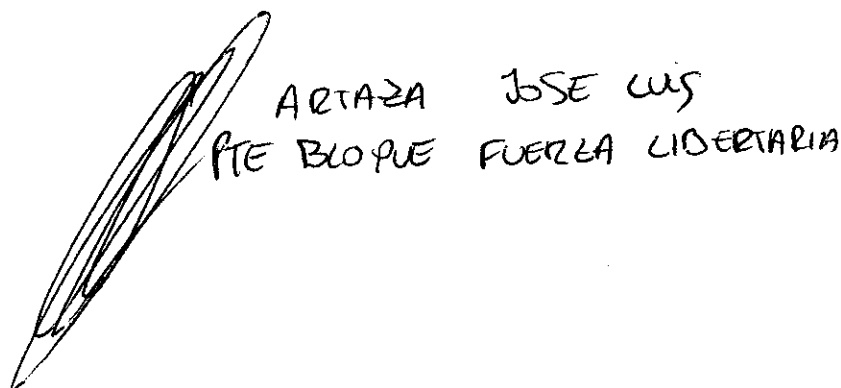 ARTAZA JOSE LUIS
PTE BLOQUE FUERZA LIBERTARIA